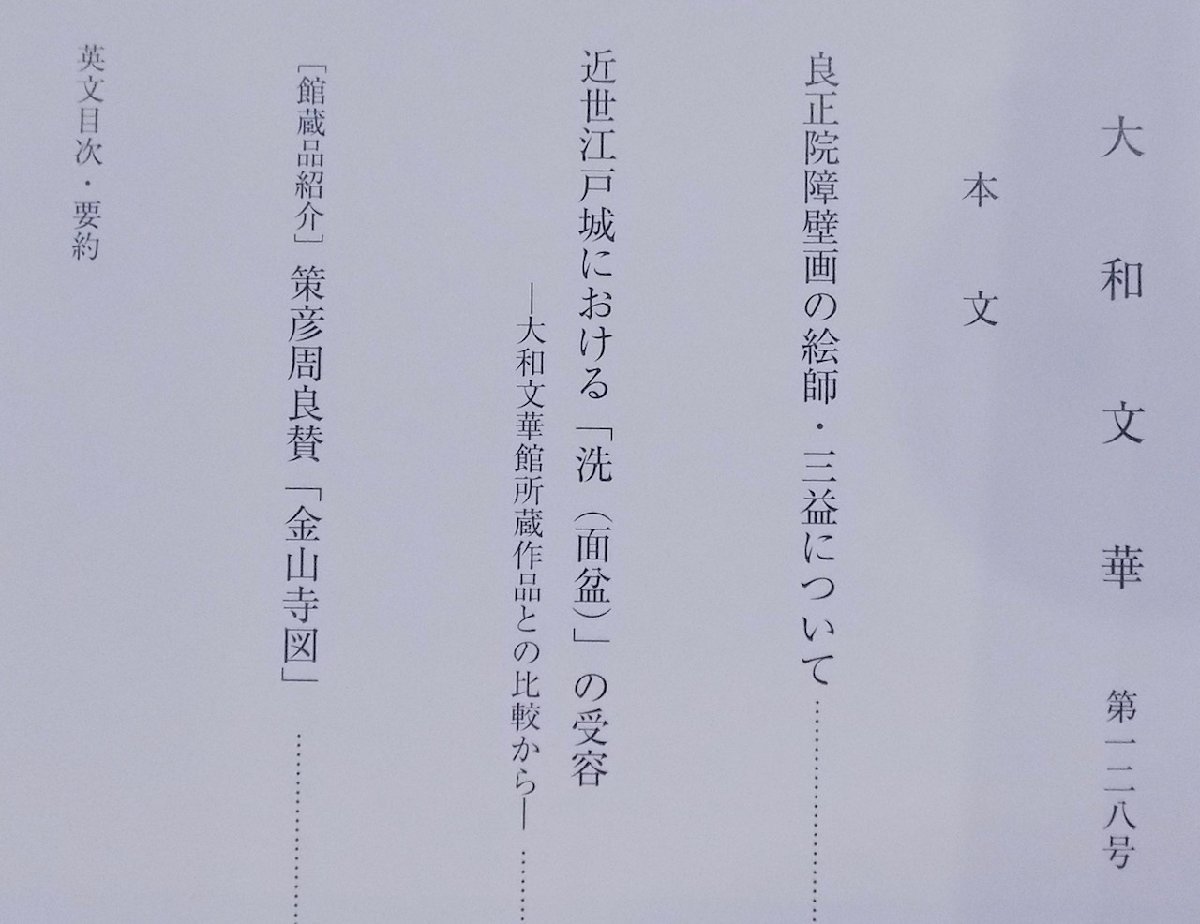 大和文華 第一二八号
本文
良正院障壁画の絵師・三益について…………
近世江戸城における「洗（面盆）」の受容
―大和文華館所蔵作品との比較から―……
［館蔵品紹介］策彦周良賛「金山寺図」…………
英文目次・要約